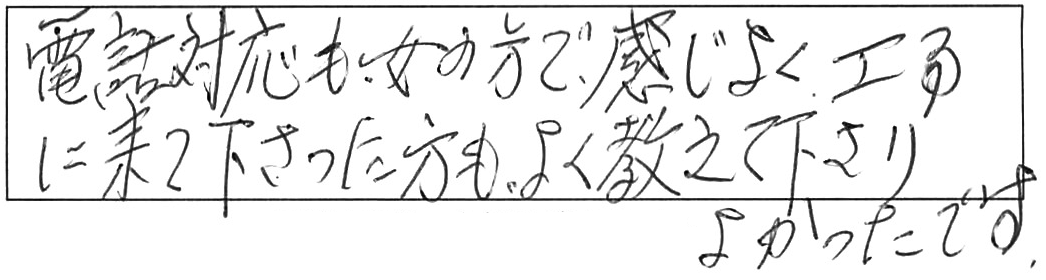 電話対応も女の方で、感じよく、工事
に来て下さった方も、よく教えて下さり
よかったです。